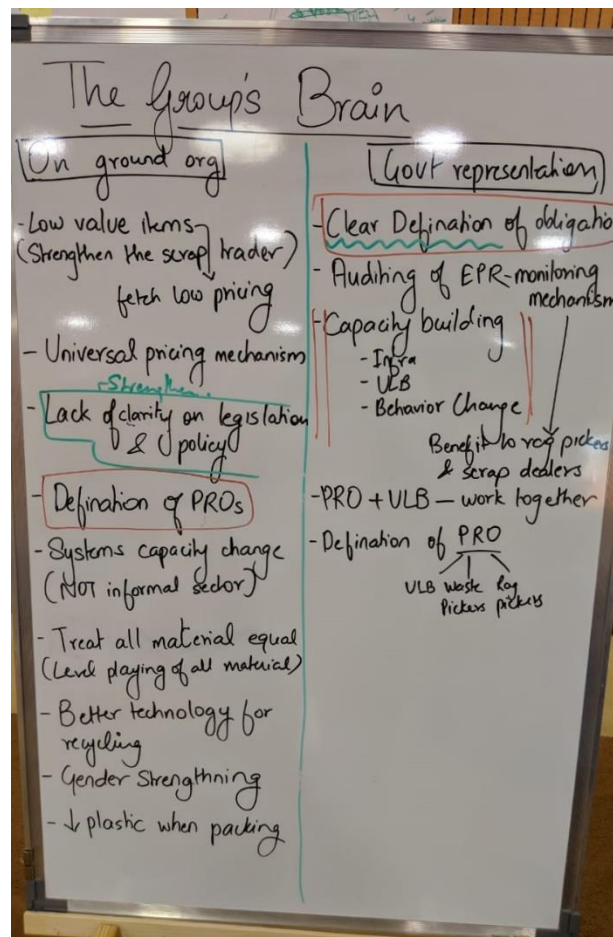 The Group's Brain
On ground org
- Low value items
(Strengthen the scrap trader)
fetch low pricing
- Universal pricing mechanism
Strengthen
- Lack of clarity on legislation
& policy
- Defination of PROs
- Systems capacity change
(NOT informal sector)
- Treat all material equal
(Level playing of all material)
- Better technology for
recycling
- Gender Strengthning
- ↓ plastic when packing
Govt representation
- Clear Defination of obligatio
- Auditing of EPR - monitoring
mechanism
- Capacity building
- Infra
- ULB
- Behavior Change
Benefit to rag pickers
& scrap dealers
- PRO + ULB — work together
- Defination of PRO
ULB Waste Rag
Pickers pickers